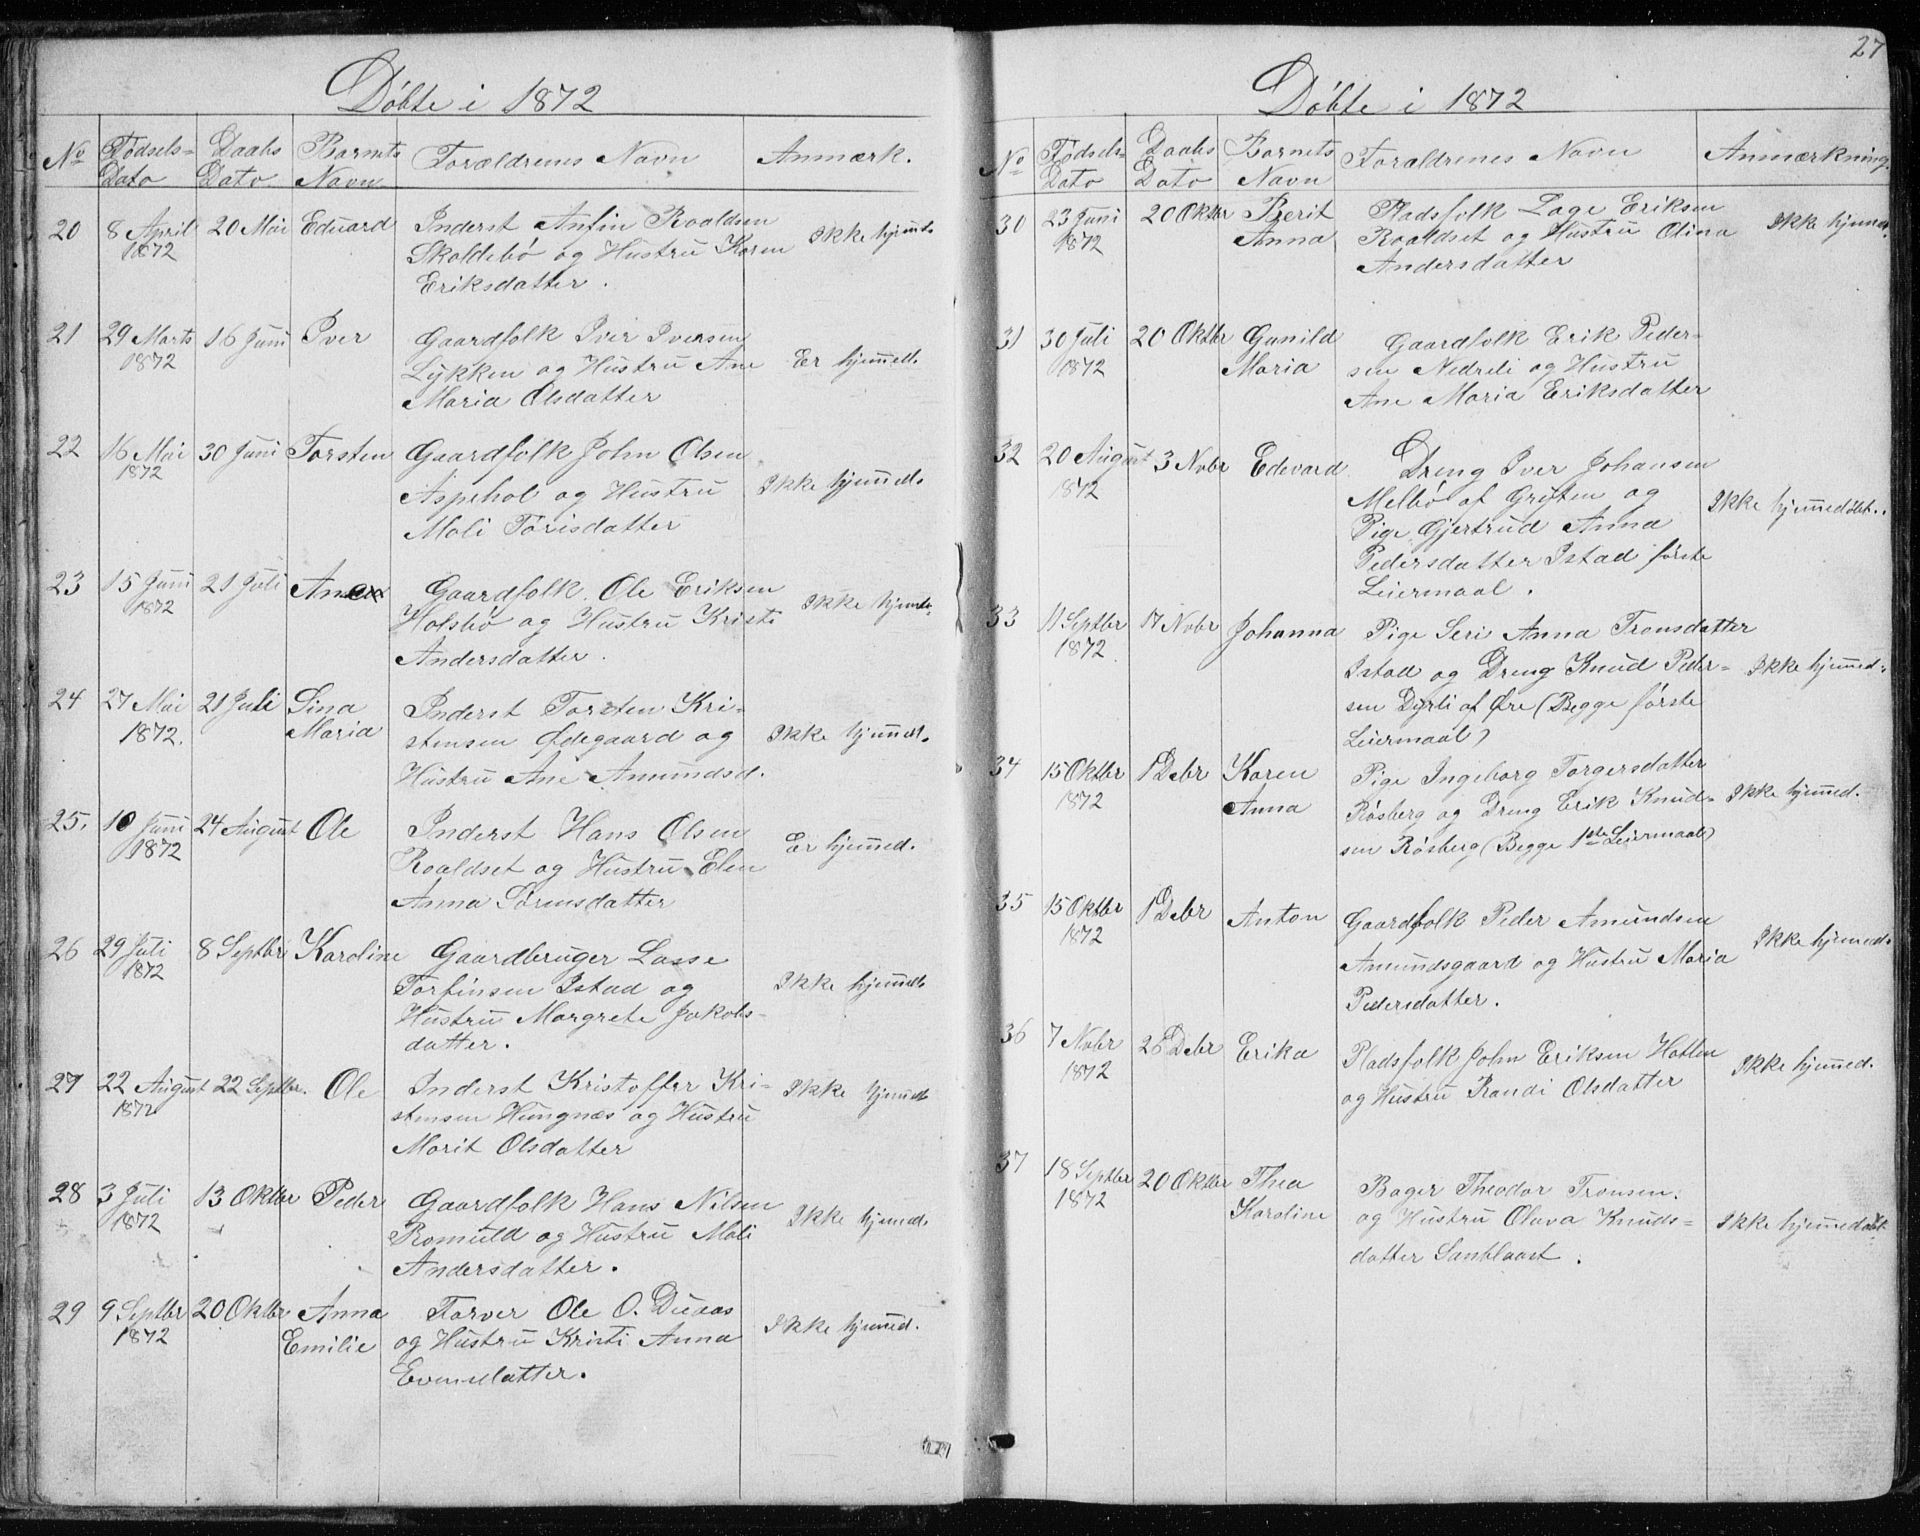 Døbte i 1872
No Fødsels= Daabs Barnets Forældrenes Navn Anmærk.
Dato Dato Navn
20 8 April 20 Mai Eduard Inderst Anfin Roaldsen Ikke hjemd.
1872 Skoldebø og Hustru Karen
Eriksdatter.
21 29 Marts 16 Juni Iver Gaardfolk Iver Iversen
1872 Lykken og Hustru Ane Er hjemed.
Maria Olsdatter
22 16 Mai 30 Juni Torsten Gaardfolk John Olsen
1872 Aspehol og Hustru Ikke hjemed.
Moli Torisdatter
23 15 Juni 21 Juli Ane Gaardfolk Ole Eriksen
1872 Holsbø og Hustru Kristi Ikke hjemd.
Andersdatter.
24 27 Mai 21 Juli Sina Inderst Torsten Kri-
1872. Maria stensen Ødegaard og Ikke hjemed.
Hustru Ane Amundsd.
25. 10 Juni 24 August Ole Inderst Hans Olsen
1872 Roaldset og Hustru Elen Er hjemed.
Anna Sørensdatter
26 29 Juli 8 Septbr Karoline Gaardbruger Lasse
1872 Torfinsen Istad og Ikke hjemed.
Hustru Margrete Jakobs-
datter.
27 22 August 22 Septbr. Ole Inderst Kristoffer Kri- Ikke hjemed.
1872 stensen Hungnæs og Hustru
Marit Olsdatter
28 3 Juli 13 Oktbr Peder Gaardfolk Hans Nilsen
1872 Romuld og Hustru Moli Ikke hjemed.
Andersdatter.
29 9 Septbr 20 Oktbr Anna Farver Ole O. Duaas
1872 Emilie og Hustru Kristi Anna Ikke hjemed.
Evensdatter.
27
Døbte i 1872
No Fødsels- Daabs Barnets Forældrenes Navn Anmærkning.
Dato Dato Navn
30 23 Juni 20 Oktbr Berit Pladsfolk Lage Eriksen Ikke hjemed.
1872 Anna Roaldset og Hustru Olina
Andersdatter
31 30 Juli 20 Oktbr Gunild Gaardfolk Erik Peder-
1872 Maria sen Nedreli og Hustru
Ane Maria Eriksdatter
32 20 August 3 Nobr Edevard Dreng Iver Johansen
1872 Melbø af Grytten og Ikke hjemedøbt.
Pige Gjertrud Anna
Pedersdatter Istad første
Leiermaal.
33 11 Septbr 17 Nobr Johanna Pige Seri Anna Tronsdatter
1872 Istad og Dreng Knud Peder- Ikke hjemed.
sen Dyrli af Øre (Begge første
Leiermaal)
34 15 Oktbr 1 Debr Karen Pige Ingeborg Torgersdatter
1872 Anna Røsberg og Dreng Erik Knud- Ikke hjemed.
sen Røsberg (Begge 1ste Leiermaal)
35 15 Oktbr 1 Debr Anton Gaardfolk Peder Amundsen
1872 Amundsgaard og Hustru Maria Ikke hjemed.
Pedersdatter.
36 7 Nobr 26 Debr Erika Pladsfolk John Eriksen Hatlen Ikke hjemed.
1872 og Hustru Randi Olsdatter
37 18 Septbr 20 Oktbr Thea Bager Theodor Tronsen
1872 Karoline og Hustru Olava Knuds- Ikke hjemedøbt.
datter Sanblaast.